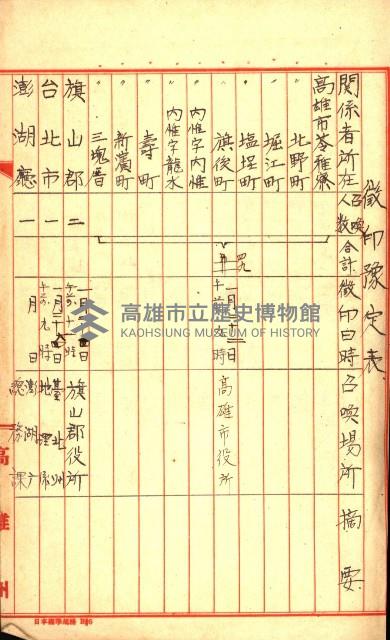 徴印豫定表
関係者所在 召喚人数 合計 徴印日時 召喚場所 摘要
高雄市苓雅寮
〃 北野町
〃 堀江町
〃 塩埕町
〃 旗後町 四九 一月二十二日 午前九時 高雄市役所
〃 内惟字内惟
〃 内惟字龍水
〃 壽町
〃 新濱町
〃 三塊厝
旗山郡 二 旗山郡役所
台北市 一 午前九時
澎湖廳 一 月 日 澎湖廳 務課
高雄州
高雄市立歷史博物館
KAOHSIUNG MUSEUM OF HISTORY